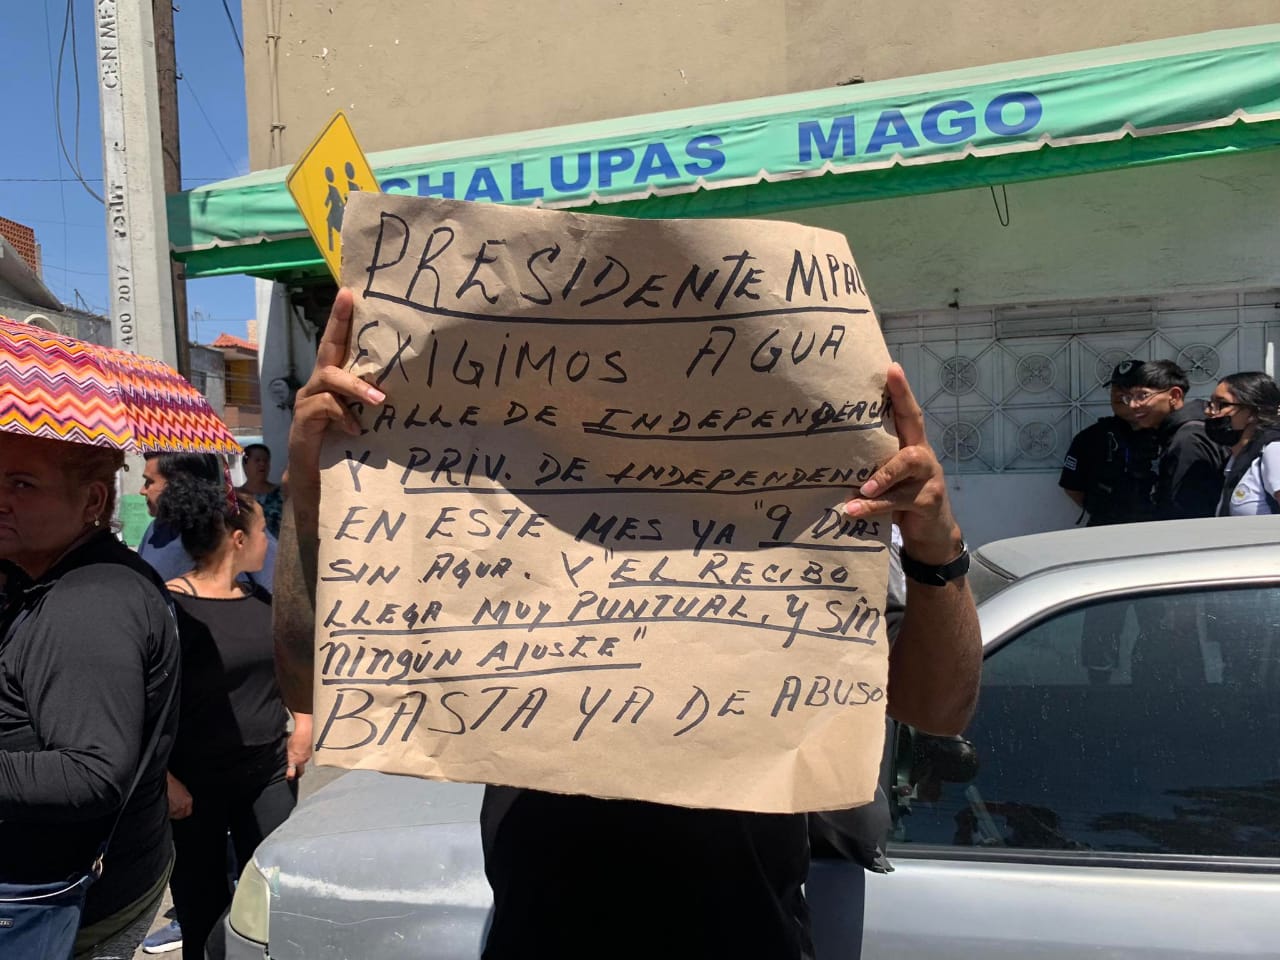 CHALUPAS MAGO
PRESIDENTE MPAL
EXIGIMOS AGUA
CALLE DE INDEPENDENCIA
Y PRIV. DE INDEPENDENCI
EN ESTE MES YA "9 DIAS
SIN AGUA. Y "EL RECIBO
LLEGA MUY PUNTUAL, Y SÍN
NINGÚN AJUSTE"
BASTA YA DE ABUSO
400 2017